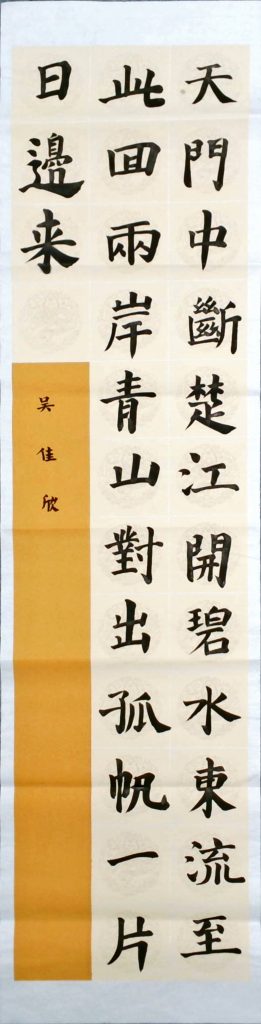 天門中斷楚江開碧水東流至
此回兩岸青山對出孤帆一片
日邊来
吴佳欣